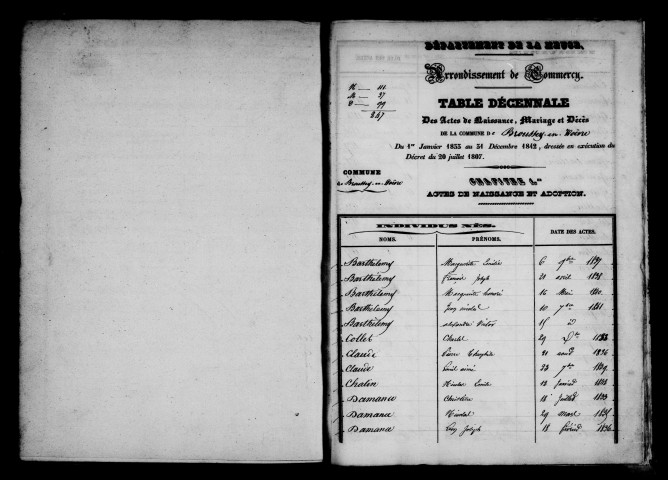 DÉPARTEMENT DE LA MEUSE.
Arrondissement de Commercy.
N — 111
M — 37
D — 99
247
TABLE DÉCENNALE
Des Actes de Naissance, Mariage et Décès
DE LA COMMUNE De Broussey-en-Woëvre
Du 1er Janvier 1833 au 31 Décembre 1842, dressée en exécution du
Décret du 20 juillet 1807.
COMMUNE
de Broussey-en-Woëvre
CHAPITRE 1er
ACTES DE NAISSANCE ET ADOPTION.
INDIVIDUS NÉS.
NOMS. PRÉNOMS. DATE DES ACTES.
Barthélemy Marguerite 6 9bre
Barthélemy François Joseph 20 avril 1838
Barthélemy Marguerite 1840
Barthélemy Jean Nicolas 10 7bre 1841
Barthélemy Victor 15
Collet Charles 29 1833
Claude Pierre Théophile 21 1836
Claude 23 7bre 1839
Chatin Nicolas Émile 12 février
Damance Christine 18 juillet 1833
Damance Nicolas 29 Mars 1835
Damance Joseph 18 février 1836